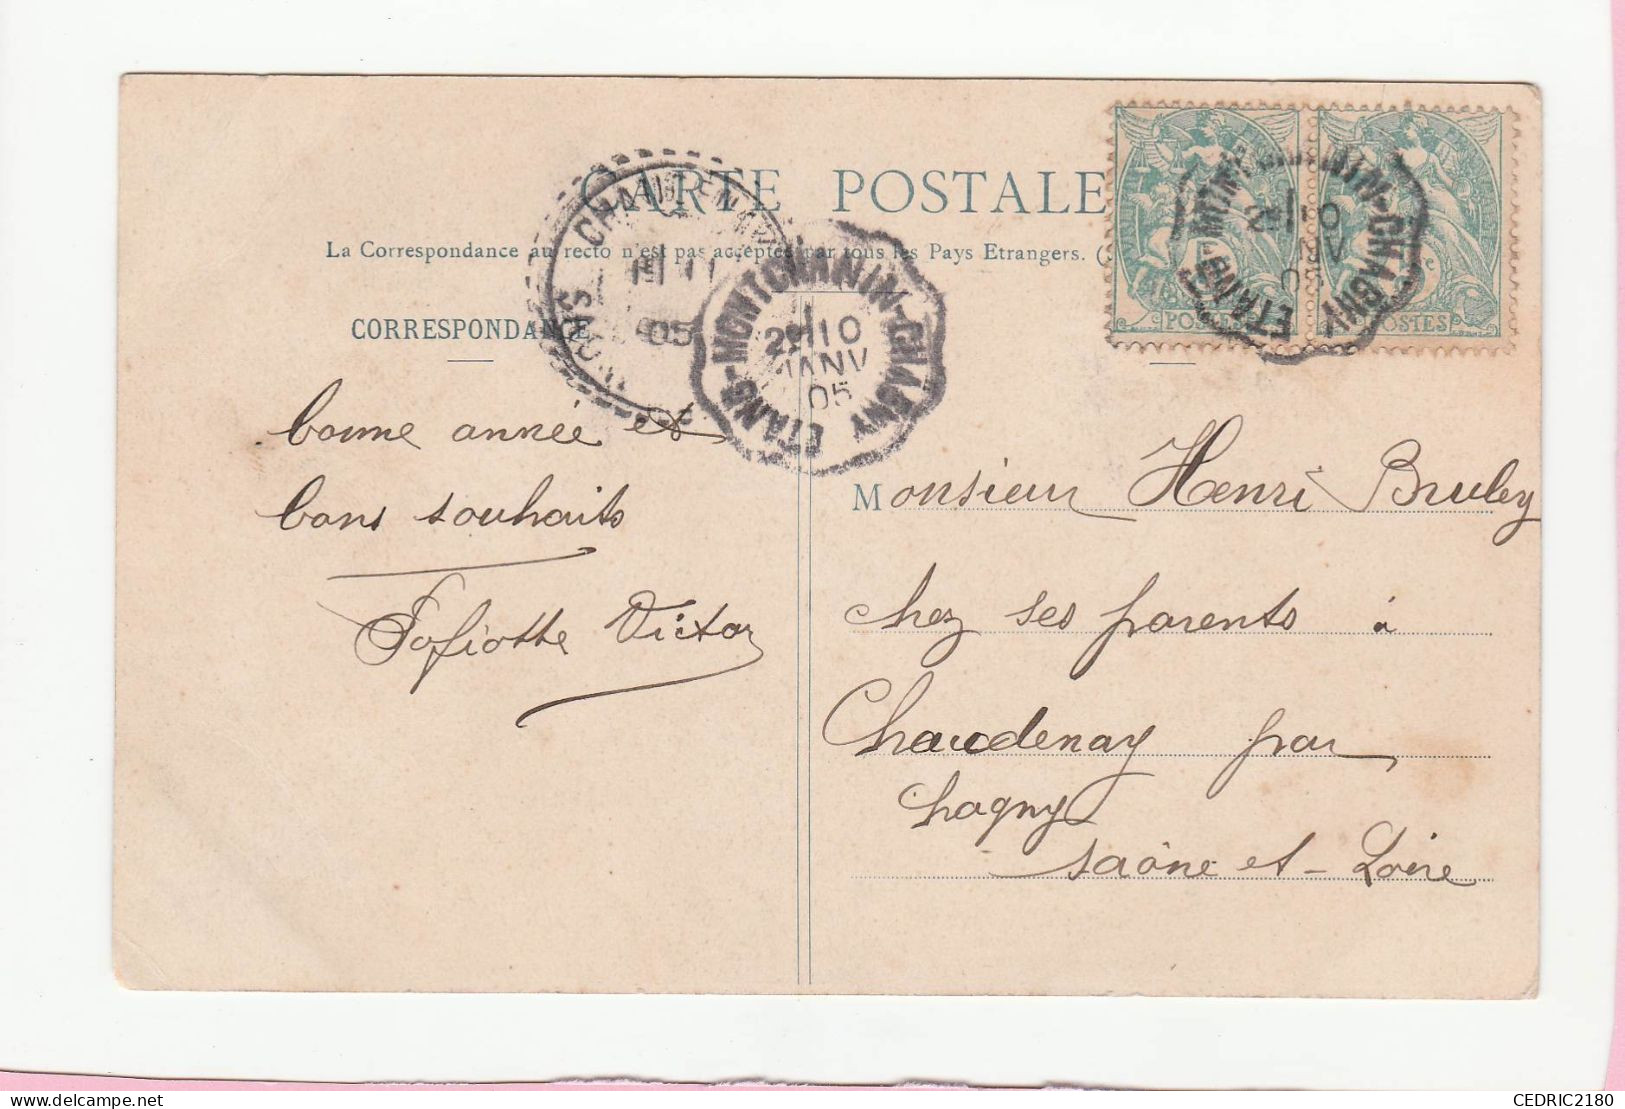 CARTE POSTALE
La Correspondance au recto n'est pas acceptée par tous les Pays Etrangers. (
CORRESPONDANCE
ETANG-MONTCHANIN-CHAGNY
2E 10
JANV
05
CHAUDENAY
11
05
ETANG-MONTCHANIN-CHAGNY
2E 10
05
POSTES
POSTES
bonne année et
bons souhaits
Victor
Monsieur Henri Bruley
chez ses parents à
Chaudenay par
Chagny
Saône et-Loire
CEDRIC2180